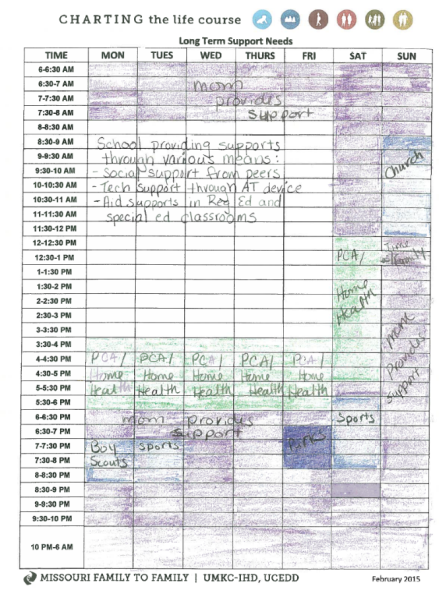 CHARTING the life course
Long Term Support Needs
TIME MON TUES WED THURS FRI SAT SUN
6-6:30 AM
6:30-7 AM mom
7-7:30 AM provides
7:30-8 AM Support
8-8:30 AM
8:30-9 AM School providing supports
9-9:30 AM through various means:
9:30-10 AM - Social support from peers
10-10:30 AM - Tech support through AT device
10:30-11 AM - Aid supports in Reg Ed and
11-11:30 AM special ed classrooms
Church
11:30-12 PM
12-12:30 PM Time
12:30-1 PM PCA/
1-1:30 PM
1:30-2 PM Home
2-2:30 PM Health
2:30-3 PM
3-3:30 PM
mom
Provides
Support
3:30-4 PM
4-4:30 PM PCA/ PCA/ PCA/ PCA/ PCA/
4:30-5 PM Home Home Home Home Home
5-5:30 PM Health Health Health Health Health
5:30-6 PM
6-6:30 PM mom provides Sports
6:30-7 PM Support
7-7:30 PM Boy Sports
7:30-8 PM Scouts
8-8:30 PM
8:30-9 PM
9-9:30 PM
9:30-10 PM
10 PM-6 AM
MISSOURI FAMILY TO FAMILY | UMKC-IHD, UCEDD February 2015